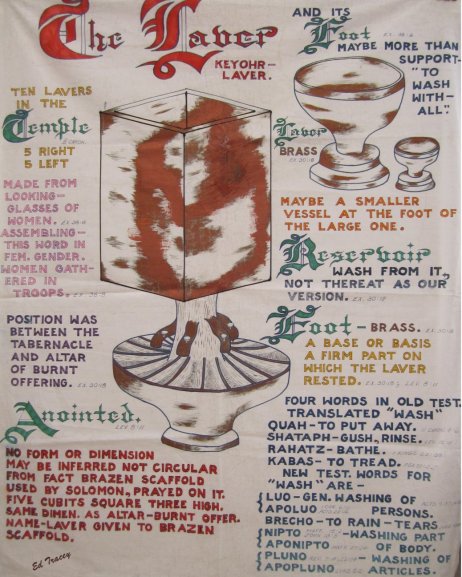 The Laver
KEYOHR-
LAVER.
AND ITS
Foot EX. 38:8
MAYBE MORE THAN
SUPPORT-
"TO
WASH
WITH-
ALL".
TEN LAVERS
IN THE
Temple
5 RIGHT
5 LEFT
Laver
BRASS
EX. 30:18
MADE FROM
LOOKING-
GLASSES OF
WOMEN. EX. 38:8
ASSEMBLING-
THIS WORD IN
FEM. GENDER.
WOMEN GATH-
ERED IN
TROOPS. EX. 38:8
MAYBE A SMALLER
VESSEL AT THE FOOT OF
THE LARGE ONE.
Reservoir
WASH FROM IT,
NOT THEREAT AS OUR
VERSION. EX. 30:18
POSITION WAS
BETWEEN THE
TABERNACLE
AND ALTAR
OF BURNT
OFFERING. EX. 30:18
Foot - BRASS. EX. 30:18
A BASE OR BASIS
A FIRM PART ON
WHICH THE LAVER
RESTED. EX. 30:18; LEV. 8:11
Anointed.
LEV. 8:11
NO FORM OR DIMENSION
MAY BE INFERRED NOT CIRCULAR
FROM FACT BRAZEN SCAFFOLD
USED BY SOLOMON, PRAYED ON IT.
FIVE CUBITS SQUARE THREE HIGH.
SAME DIMEN. AS ALTAR-BURNT OFFER.
NAME-LAVER GIVEN TO BRAZEN
SCAFFOLD.
Ed Tracey
FOUR WORDS IN OLD TEST.
TRANSLATED "WASH"
QUAH-TO PUT AWAY.
SHATAPH-GUSH, RINSE.
RAHATZ-BATHE.
KABAS-TO TREAD.
NEW TEST. WORDS FOR
"WASH" ARE-
LUO-GEN. WASHING OF
APOLUO PERSONS.
BRECHO-TO RAIN-TEARS
NIPTO -WASHING PART
APONIPTO OF BODY.
PLUNO -WASHING OF
APOPLUNO ARTICLES.